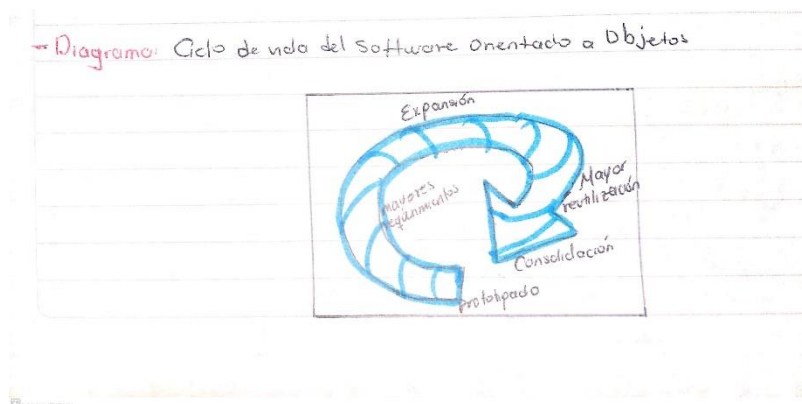 - Diagrama: Ciclo de vida del Software Orientado a Objetos
Expansión
Mayores
requerimientos
Mayor
reutilización
Consolidación
Prototipado